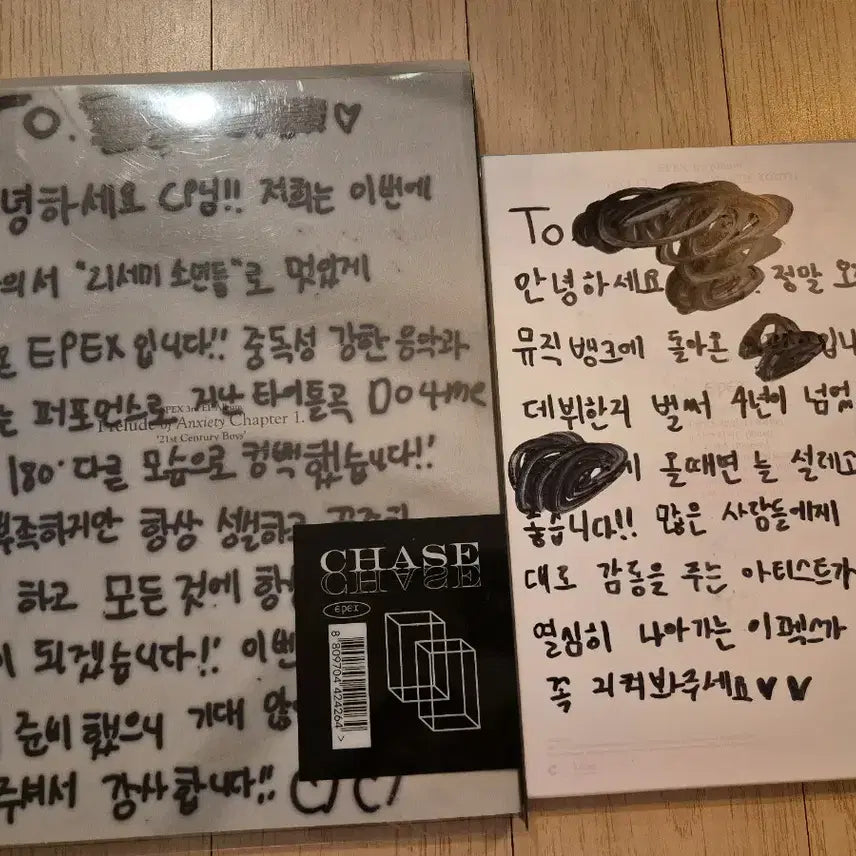 To. ♡
녕하세요 CP님!! 저희는 이번에
의서 "리세미 소년들"로 멋있게
온 EPEX 입니다!! 중독성 강한 음악과
는 퍼포먼스로 지난 타이틀곡 Do 4 me
EPEX 3rd EP Album
Prelude of Anxiety Chapter 1.
'21st Century Boys'
180° 다른 모습으로 컴백했습니다!!
부족하지만 항상 성실하고
하고 모든 것에 항상
이 되겠습니다!! 이번
준비 했으니 기대 많
주셔서 감사합니다!!
CHASE
CHASE
epex
8 809704 424264 >
To
안녕하세요 정말 오
뮤직뱅크에 돌아온 입니
데뷔한지 벌써 4년이 넘었
올때면 늘 설레고
좋습니다!! 많은 사람들에게
대로 감동을 주는 아티스트가
열심히 나아가는 이펙스가
꼭 지켜봐주세요♥♥